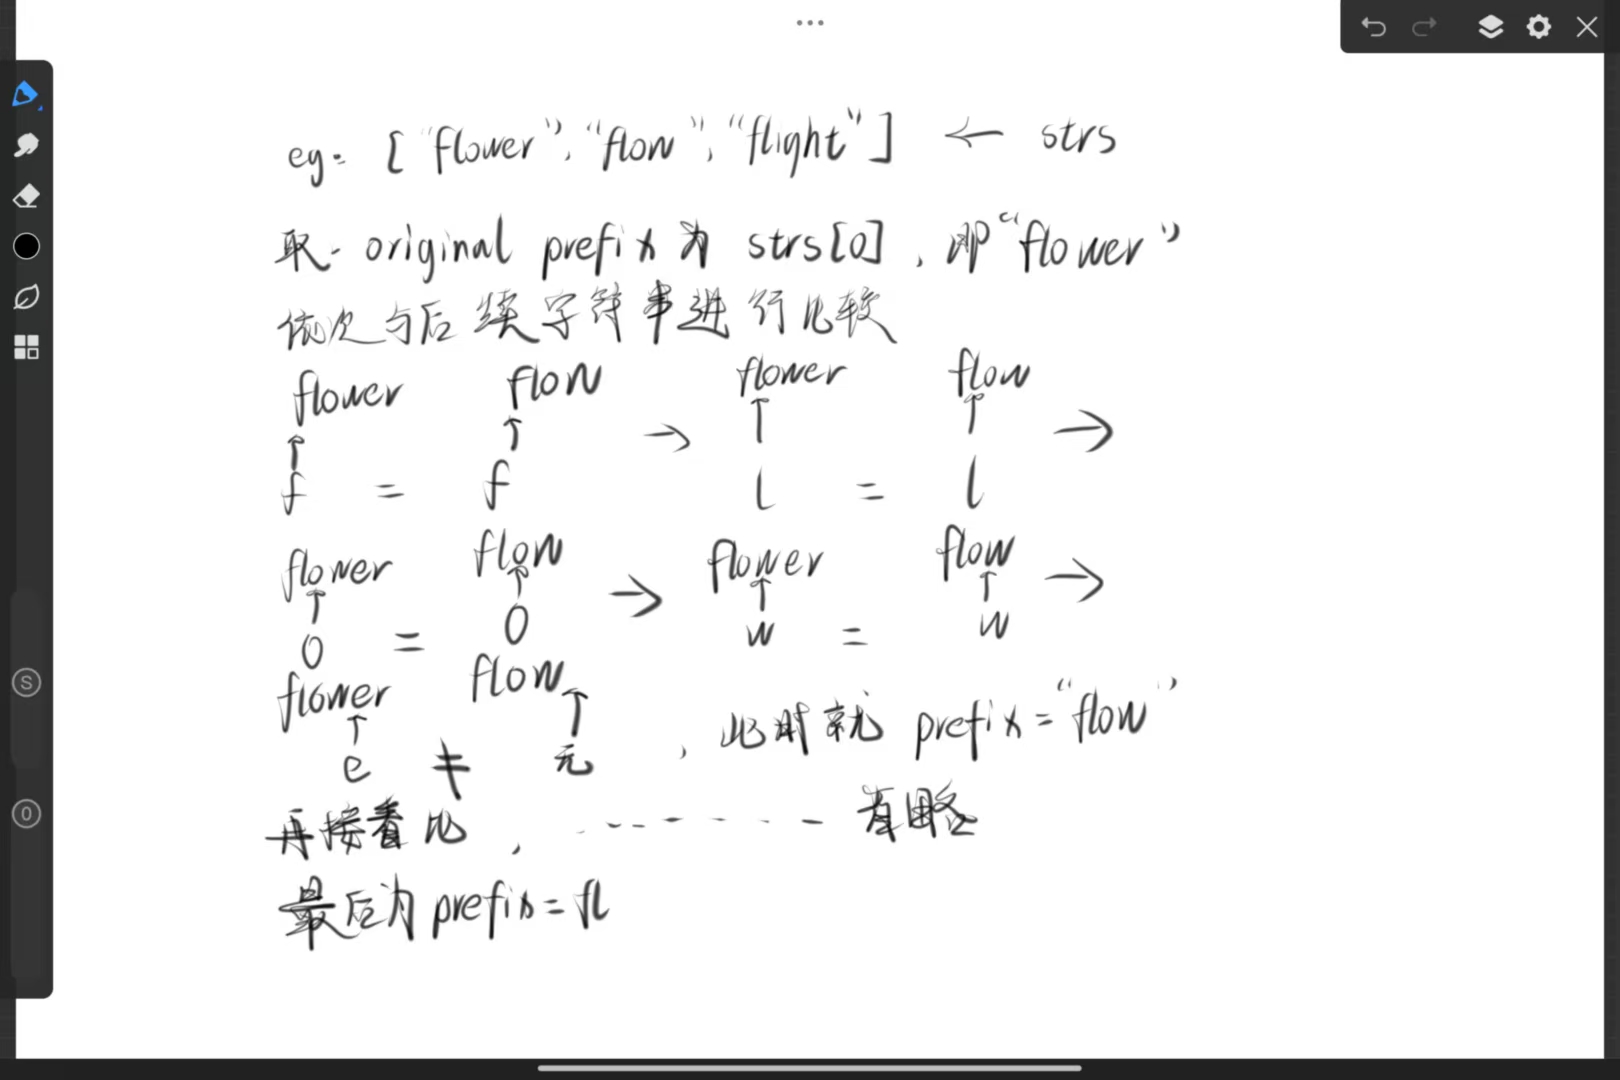 eg: ["flower", "flow", "flight"] ← strs
取. original prefix 为 strs[0], 即"flower"
依次与后续字符串进行比较
flower flow flower flow
↑ ↑ → ↑ ↑ →
f = f l = l
flower flow flower flow
↑ ↑ → ↑ ↑ →
o = o w = w
flower flow
↑ ↑
e ≠ 无 , 此时就 prefix = "flow"
再接着比, ------- 省略
最后为 prefix = fl
S
O